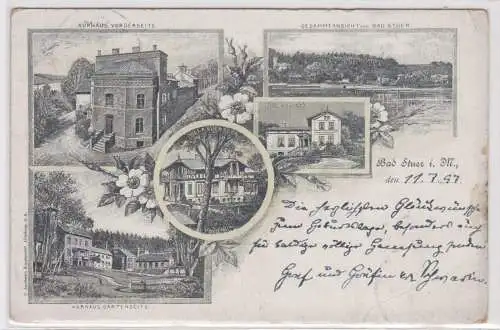 KURHAUS, VORDERSEITE.
GESAMMTANSICHT VON BAD STUER.
Bad Stuer i. M.,
den 11.7.97
Die herzlichsten Glückwünsche
zum Geburtstage, besonders auch
für baldige völlige Genesung senden
Graf und Gräfin
KURHAUS, GARTENSEITE.